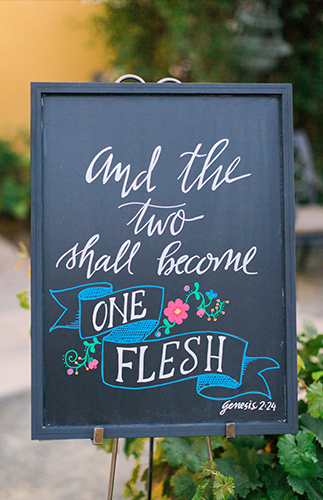 And the
two
shall become
ONE
FLESH
Genesis 2:24